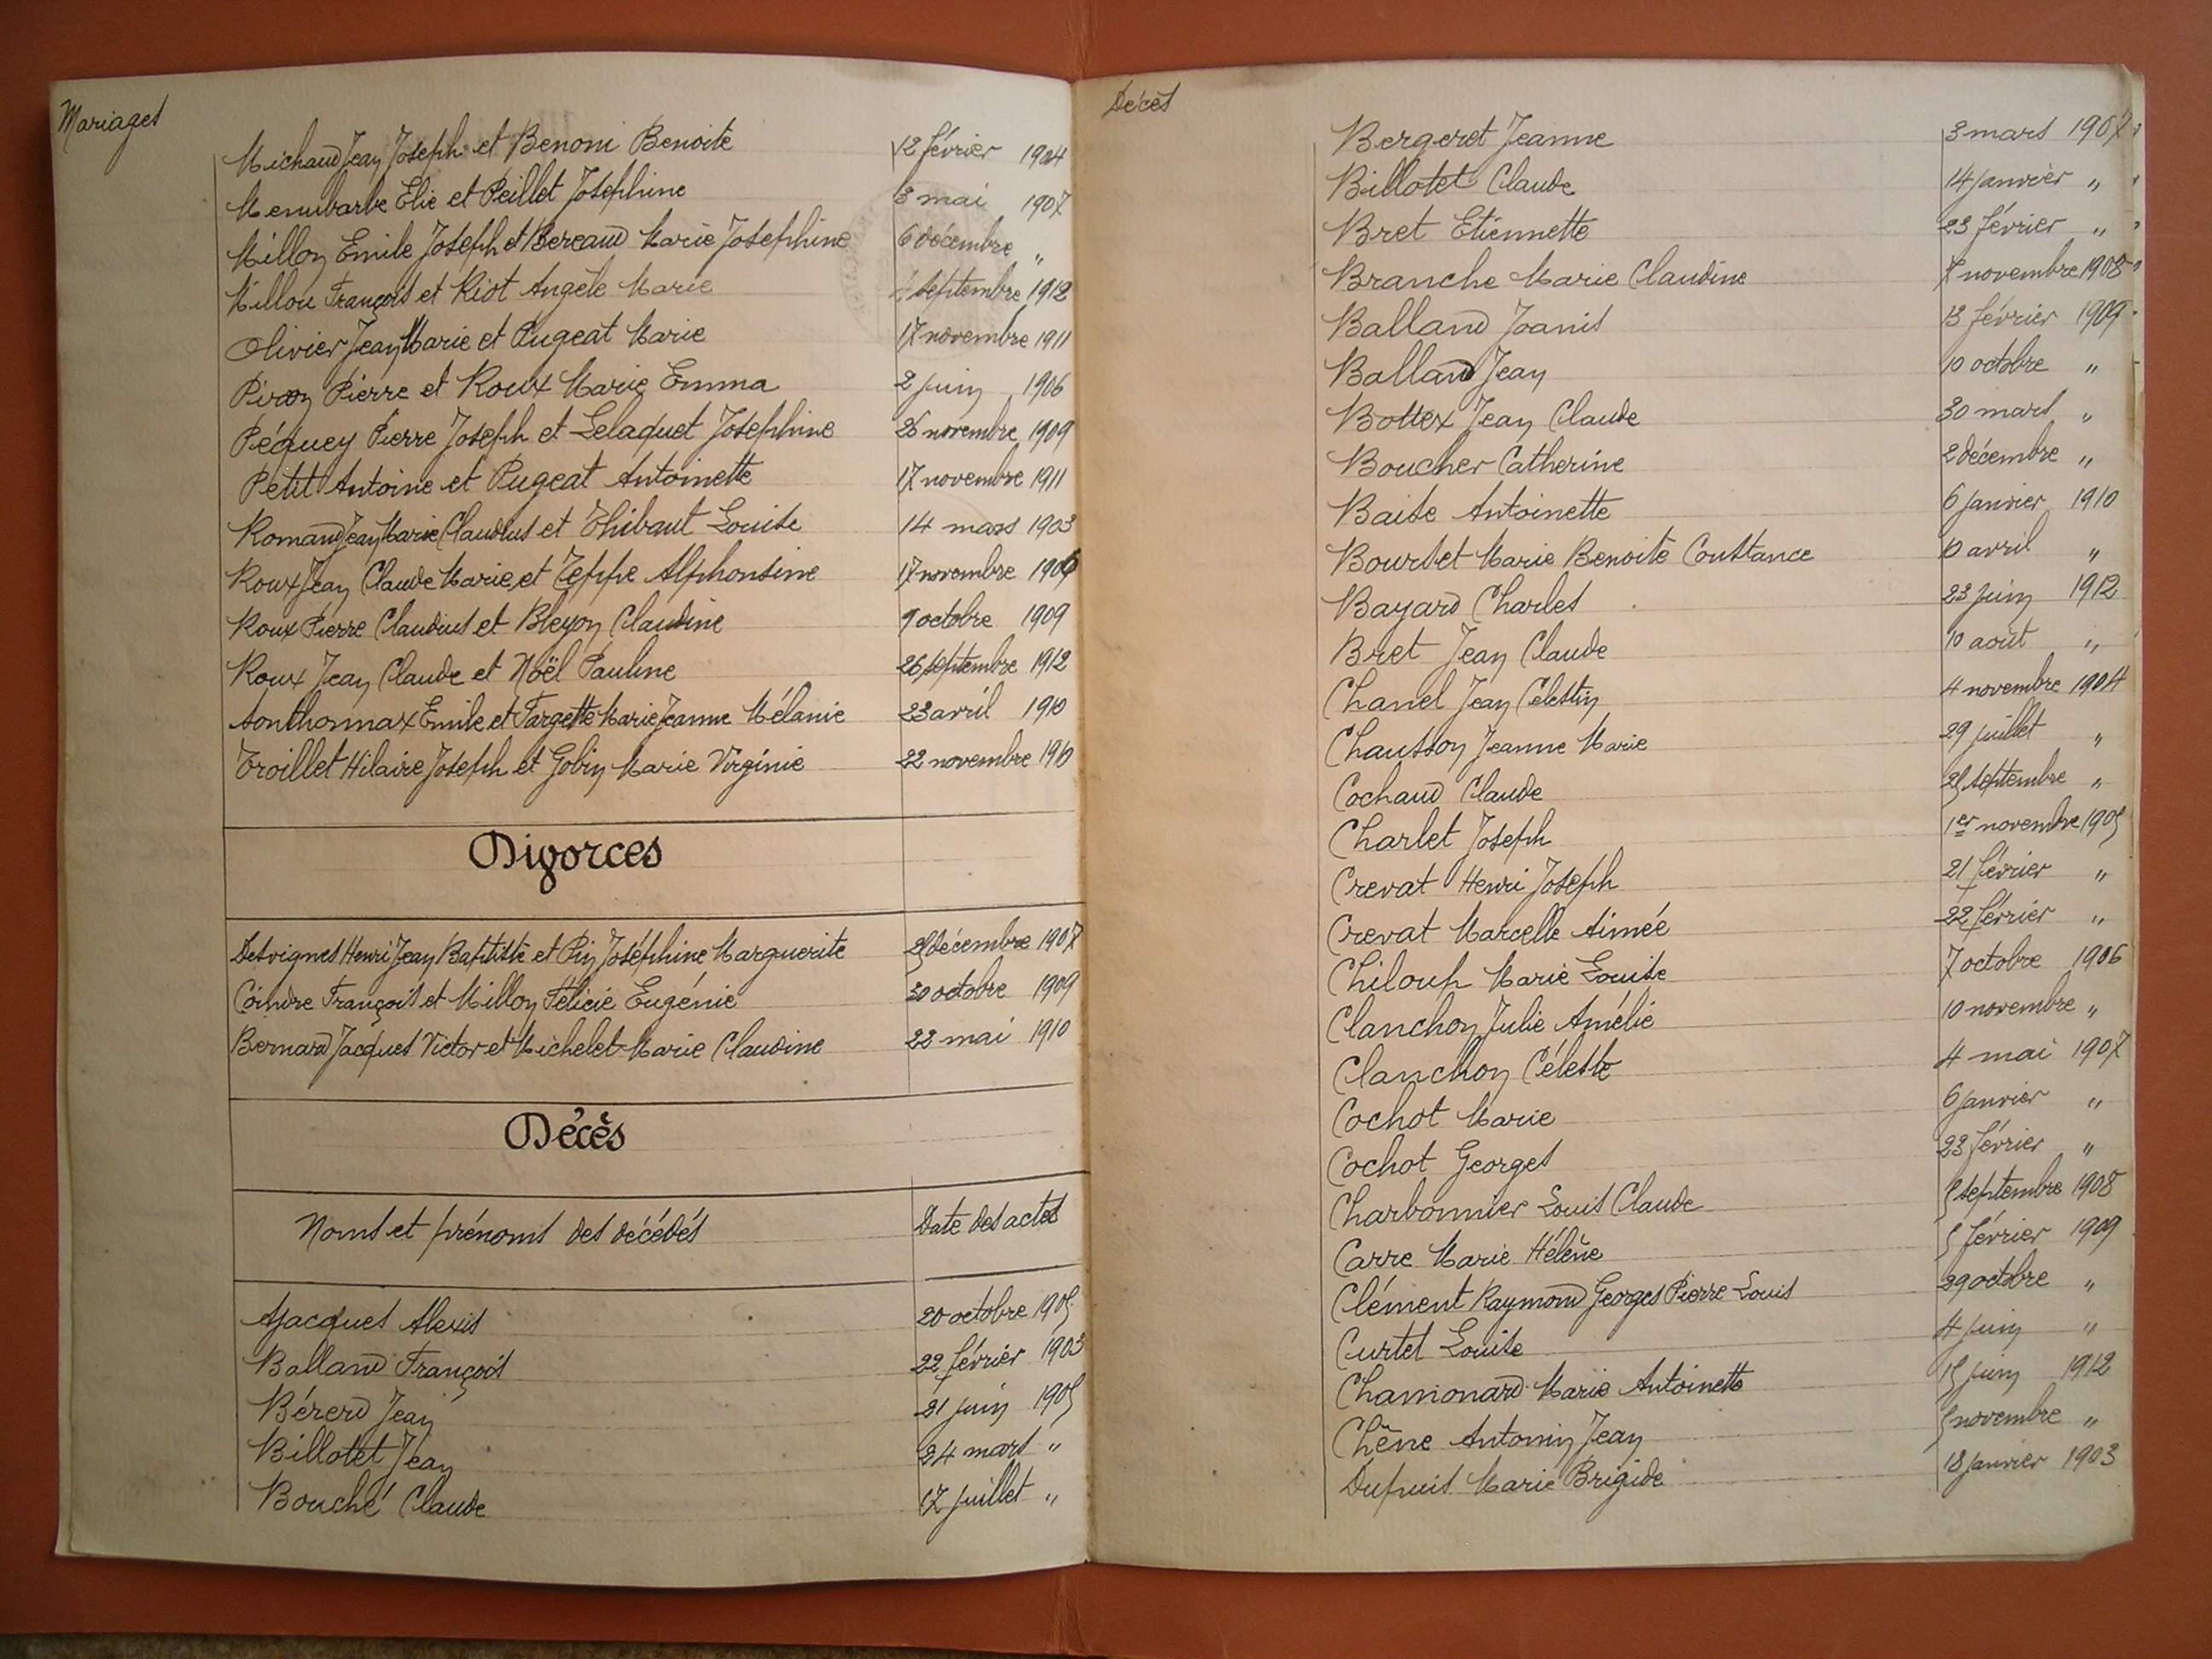 Mariages
Michaud Jean Joseph et Benoni Benoite 12 février 1904
Menubarbe Elie et Peillet Joséphine 3 mai 1907
Millon Emile Joseph et Bereaud Marie Josephine 6 décembre „
Millon François et Riot Angèle Marie septembre 1912
Olivier Jean Marie et Pugeat Marie 17 novembre 1911
Piron Pierre et Roux Marie Emma 2 juin 1906
Péquey Pierre Joseph et Lelaquet Joséphine 26 novembre 1909
Petit Antoine et Pugeat Antoinette 17 novembre 1911
Romand Jean Marie Claudius et Thibaut Louise 14 mars 1903
Roux Jean Claude Marie et Teppe Alphonsine 17 novembre 1906
Roux Pierre Claudius et Bleyon Claudine 9 octobre 1909
Roux Jean Claude et Noël Pauline 26 septembre 1912
Sonthonnax Emile et Fargette Marie Jeanne Mélanie 23 avril 1910
Troillet Hilaire Joseph et Gobin Marie Virginie 22 novembre 1910
Divorces
Desvignes Henri Jean Baptiste et Pin Joséphine Marguerite 25 décembre 1907
Coindre François et Millon Félicie Eugénie 30 octobre 1909
Bernard Jacques Victor et Michelet Marie Claudine 22 mai 1910
Décès
Noms et prénoms des décédés Date des actes
Ajacques Alexis 20 octobre 1905
Balland François 22 février 1903
Bérerd Jean 21 juin 1905
Billotet Jean 24 mars „
Bouché Claude 17 juillet „
Décès
Bergeret Jeanne 3 mars 1907
Billotet Claude 14 janvier „
Bret Etiennette 23 février „
Branche Marie Claudine 7 novembre 1908
Balland Joanis 13 février 1909
Balland Jean 10 octobre „
Bottex Jean Claude 30 mars „
Boucher Catherine 2 décembre „
Baise Antoinette 6 janvier 1910
Bourset Marie Benoite Constance 10 avril „
Bayard Charles 23 juin 1912
Bret Jean Claude 10 août „
Chanel Jean Célestin 4 novembre 1904
Chausson Jeanne Marie 29 juillet „
Cochaud Claude 25 septembre „
Charlet Joseph 1er novembre 1905
Crevat Henri Joseph 21 février „
Crevat Marcelle Aimée 22 février „
Chiloup Marie Louise 7 octobre 1906
Clanchon Julie Amélie 10 novembre „
Clanchon Céleste 4 mai 1907
Cochot Marie 6 janvier „
Cochot Georges 23 février „
Charbonnier Louis Claude 5 septembre 1908
Carre Marie Hélène 5 février 1909
Clément Raymond Georges Pierre Louis 29 octobre „
Curtet Louise 4 juin „
Chamonard Marie Antoinette 15 juin 1912
Chêne Antonin Jean 5 novembre „
Dupuis Marie Brigide 18 janvier 1903